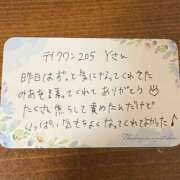 テイクワン205 Yさん
昨日はずっと気になってくれてた
のあを選んでくれてありがとう
たくさん焦らして責めたんだけど
いっぱい気持ちよくなってくれてよかった♪